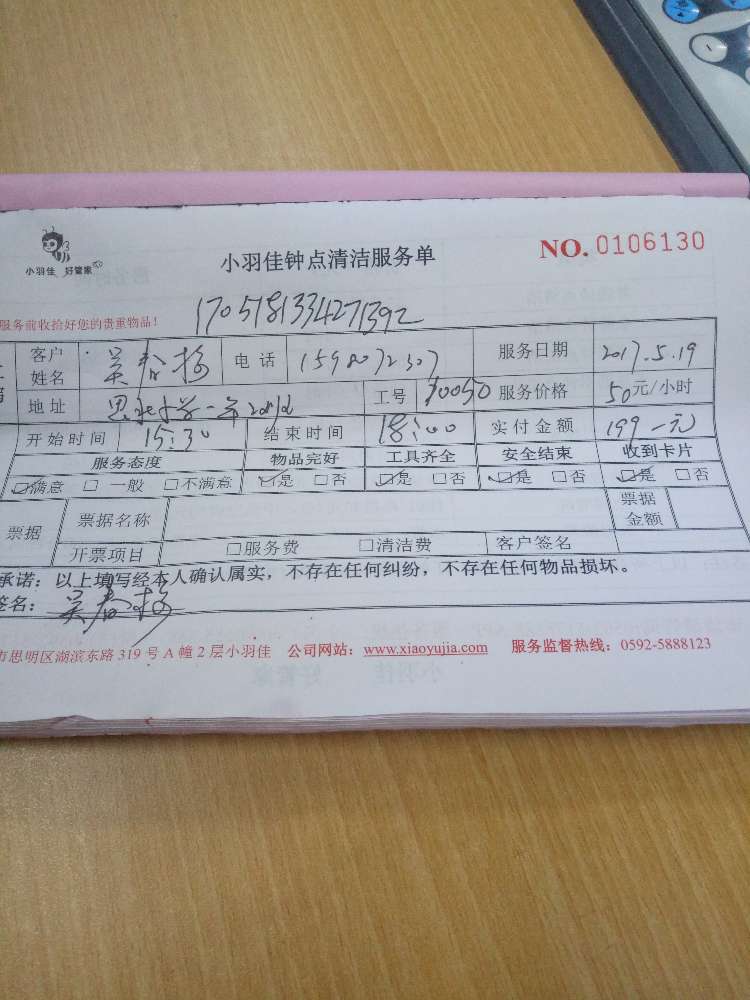 小羽佳 好管家
小羽佳钟点清洁服务单
NO. 0106130
服务前收拾好您的贵重物品！
1705181334271392
客户姓名 吴春梅 电话 服务日期 2017.5.19
地址 工号 服务价格 50元/小时
开始时间 15:30 结束时间 18:00 实付金额 199-元
服务态度 物品完好 工具齐全 安全结束 收到卡片
☑满意 □一般 □不满意 ☑是 □否 ☑是 □否 ☑是 □否 ☑是 □否
票据 票据名称 票据金额
开票项目 □服务费 □清洁费 客户签名
承诺：以上填写经本人确认属实，不存在任何纠纷，不存在任何物品损坏。
签名：吴春梅
市思明区湖滨东路319号A幢2层小羽佳 公司网站：www.xiaoyujia.com 服务监督热线：0592-5888123